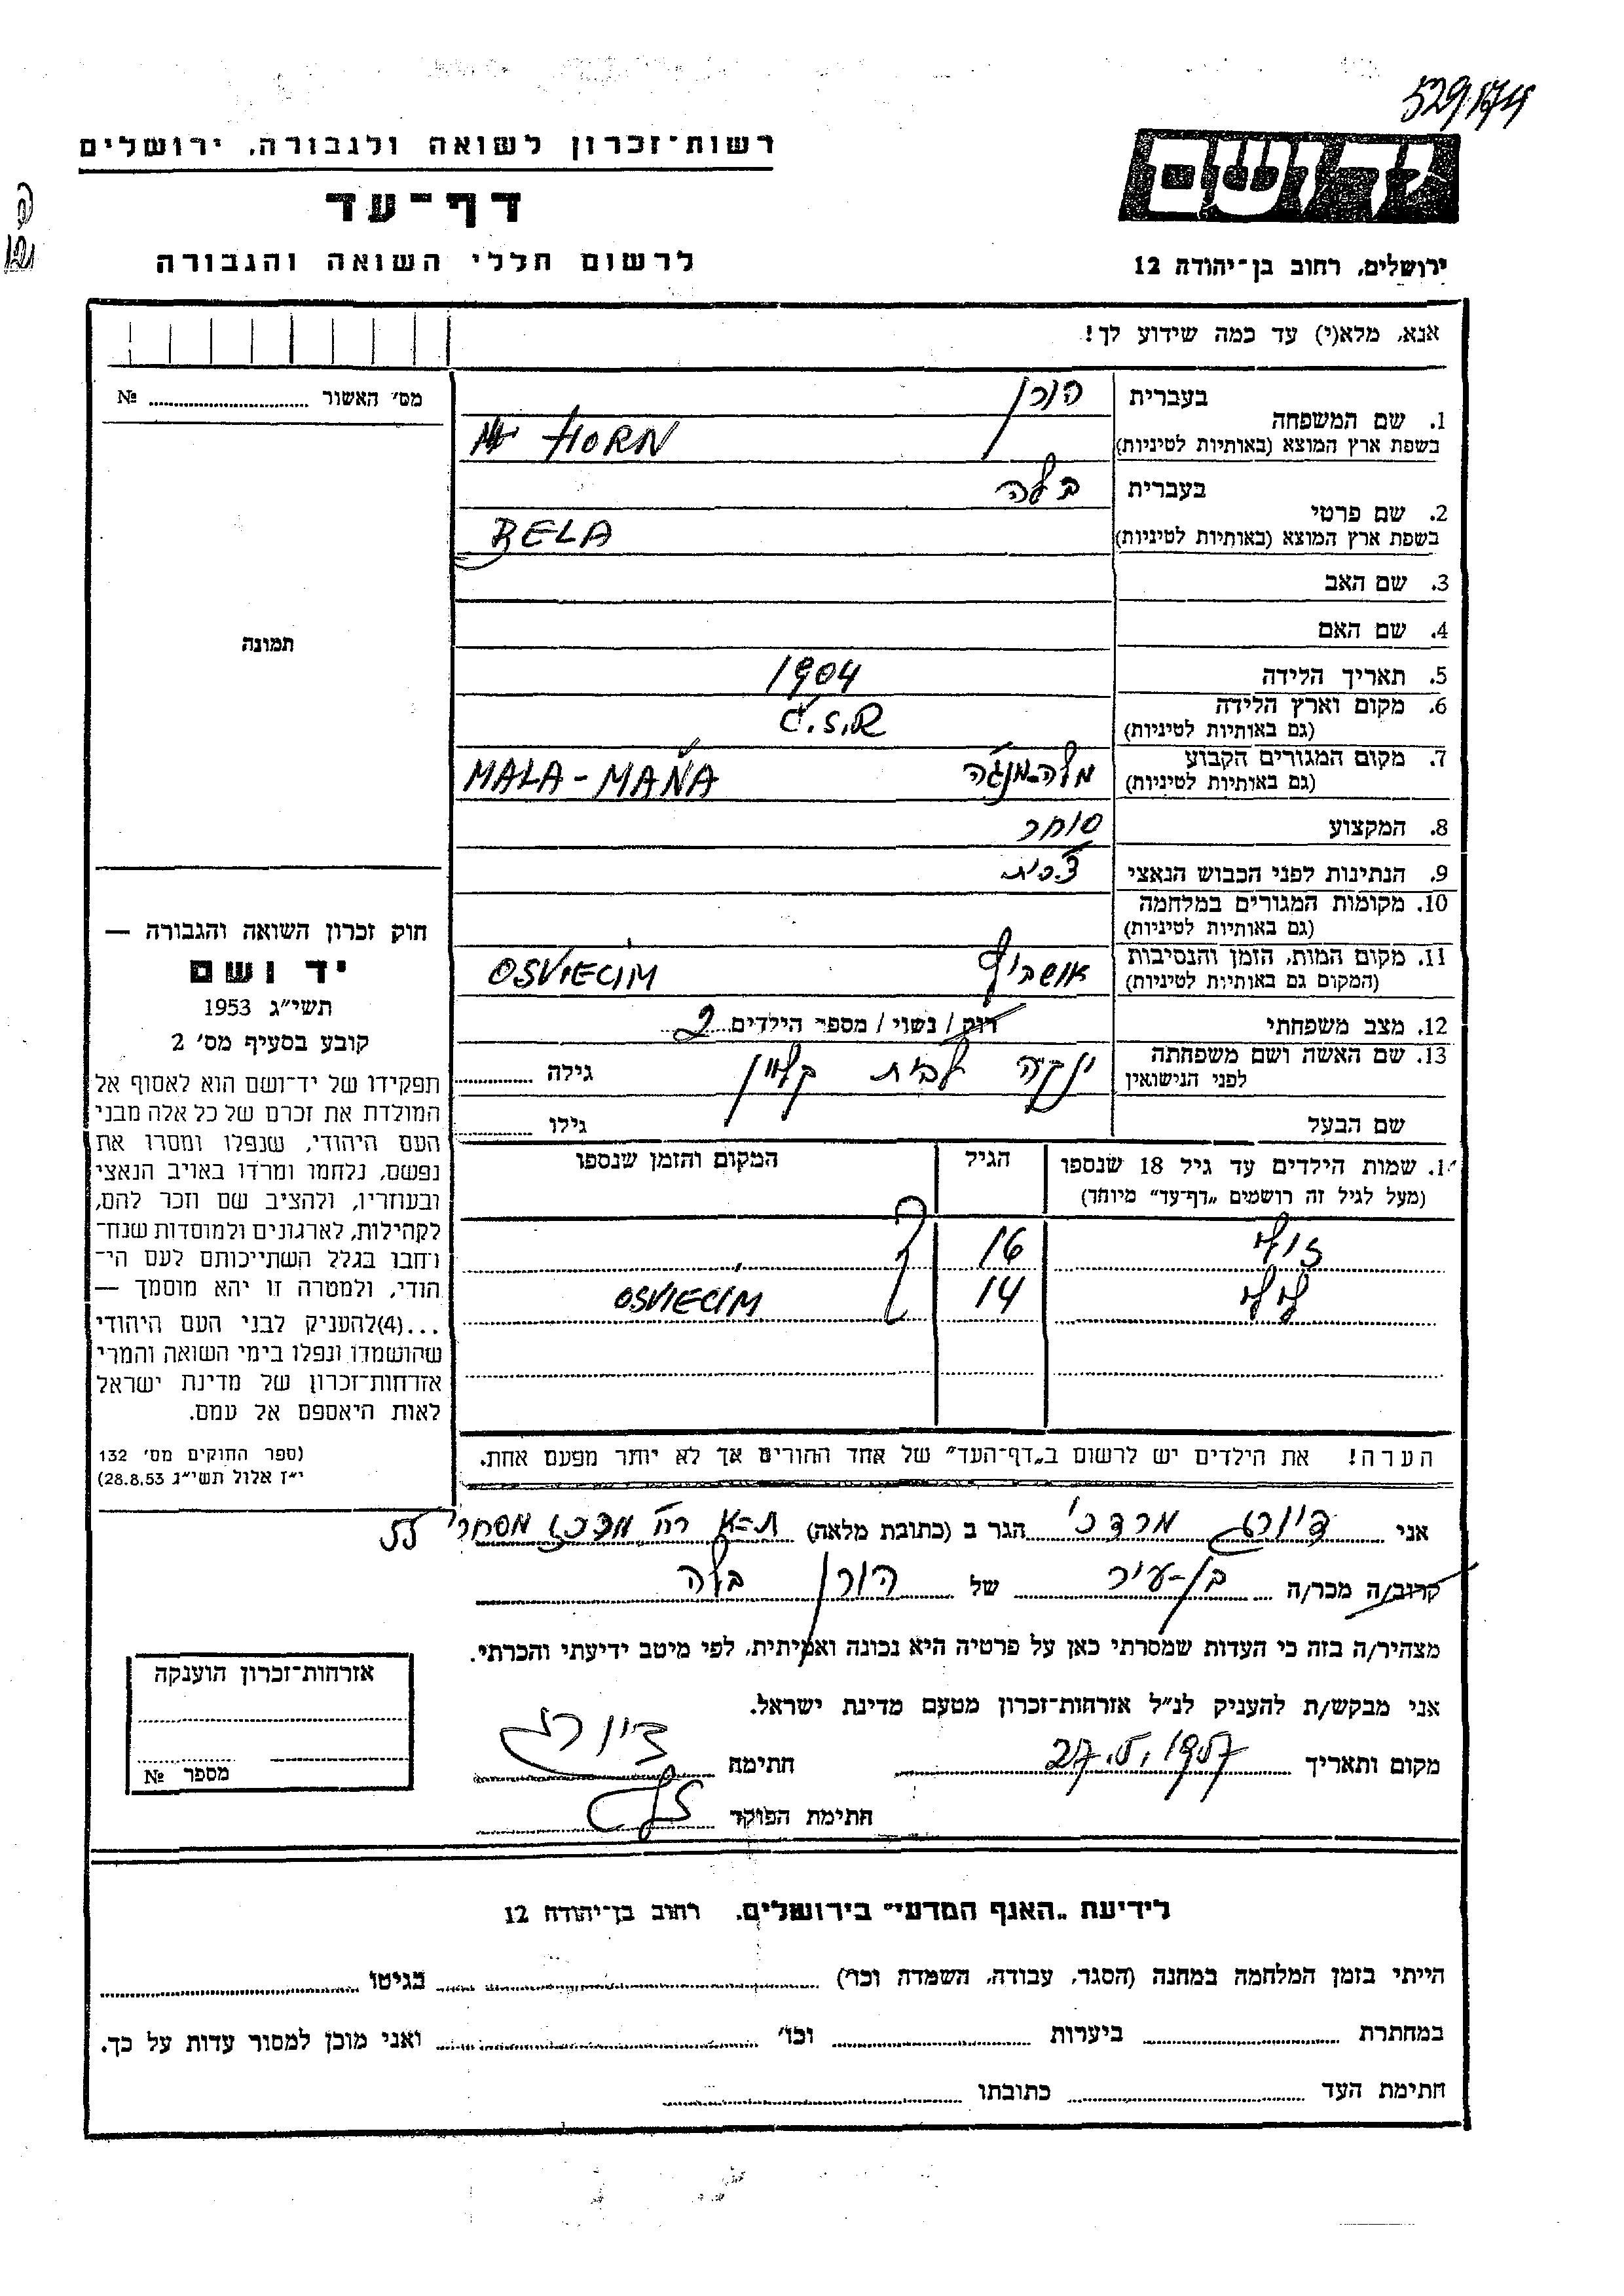 529/174
רשות־זכרון לשואה ולגבורה, ירושלים
דף־עד
לרשום חללי השואה והגבורה
יד ושם
ירושלים, רחוב בן־יהודה 12
אנא, מלא(י) עד כמה שידוע לך!
מס׳ האשור № 
1. שם המשפחה
בעברית הורן
בשפת ארץ המוצא (באותיות לטיניות) HORN
2. שם פרטי
בעברית בלה
בשפת ארץ המוצא (באותיות לטיניות) BELA
3. שם האב
4. שם האם
5. תאריך הלידה 1904
6. מקום וארץ הלידה Č.S.R
(גם באותיות לטיניות)
7. מקום המגורים הקבוע
(גם באותיות לטיניות) MALA-MAŇA
8. המקצוע סוחר
9. הנתינות לפני הכבוש הנאצי צ׳כית
10. מקומות המגורים במלחמה
(גם באותיות לטיניות)
11. מקום המות, הזמן והנסיבות
(המקום גם באותיות לטיניות) אושביץ OSVIECIM
12. מצב משפחתי רוק / נשוי / מספר הילדים 2
13. שם האשה ושם משפחתה
לפני הנישואין לבית קליין גילה
שם הבעל גילו
תמונה
1. שמות הילדים עד גיל 18 שנספו הגיל המקום והזמן שנספו
(מעל לגיל זה רושמים „דף־עד״ מיוחד)
16
14 OSVIECIM
הערה! את הילדים יש לרשום ב„דף־העד״ של אחד ההורים אך לא יותר מפעם אחת.
חוק זכרון השואה והגבורה —
יד ושם
תשי״ג 1953
קובע בסעיף מס׳ 2
תפקידו של יד־ושם הוא לאסוף אל
המולדת את זכרם של כל אלה מבני
העם היהודי, שנפלו ומסרו את
נפשם, נלחמו ומרדו באויב הנאצי
ובעוזריו, ולהציב שם וזכר להם,
לקהילות, לארגונים ולמוסדות שנח־
רחבו בגלל השתייכותם לעם הי־
הודי, ולמטרה זו יהא מוסמך —
...(4)להעניק לבני העם היהודי
שהושמדו ונפלו בימי השואה והמרי
אזרחות־זכרון של מדינת ישראל
לאות היאספם אל עמם.
(ספר החוקים מס׳ 132
י״ז אלול תשי״ג 28.8.53)
אני מרדכי הגר ב (כתובת מלאה) ת-א רח׳ מרכז מסחרי 55
קרוב/ה מכר/ה בן-עיר של הורן בלה
מצהיר/ה בזה כי העדות שמסרתי כאן על פרטיה היא נכונה ואמיתית, לפי מיטב ידיעתי והכרתי.
אני מבקש/ת להעניק לנ״ל אזרחות־זכרון מטעם מדינת ישראל.
מקום ותאריך 27.5.1957 חתימה
חתימת הפוקד
אזרחות־זכרון הוענקה
מספר №
לידיעת „האגף המדעי״ בירושלים, רחוב בן־יהודה 12
הייתי בזמן המלחמה במחנה (הסגר, עבודה, השמדה וכו׳) בגיטו
במחתרת ביערות וכו׳ ואני מוכן למסור עדות על כך.
חתימת העד כתובתו